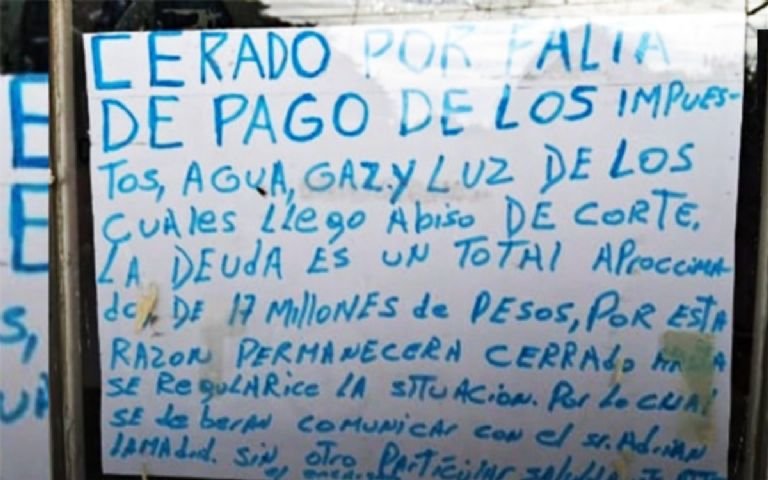 CERADO POR FALTA
DE PAGO DE LOS IMPUES-
TOS, AGUA, GAZ.Y LUZ DE LOS
CUALES LLEGO ABISO DE CORTE.
LA DEUDA ES UN TOTAL APROCCIMA-
do, DE 17 MILLONES de PESOS, POR ESTA
RAZON PERMANECERA CERRADO HASTA
SE REGULARICE LA SITUACION. POR LO CUAL
SE deberan COMUNICAR CON el sr. Adrian
LAMAdrid. SiN OTRO PARTICULAR